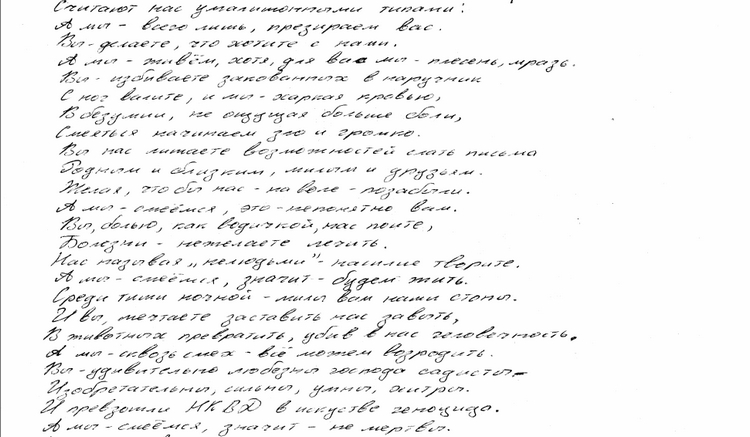 Считают нас умалишёнными типами:
А мы - всего лишь, презираем вас.
Вы - делаете, что хотите с нами.
А мы - живём, хотя, для вас мы - плесень, мразь.
Вы - избиваете закованных в наручники
С ног валите, и мы - харкая кровью,
В безумии, не ощущая больше боли,
Смеяться начинаем зло и громко.
Вы нас лишаете возможностей слать письма
Родным и близким, милым и друзьям.
Желая, что бы нас - на воле - позабыли.
А мы - смеёмся, это - непонятно вам.
Вы, болью, как водичкой, нас поите,
Болезни - нежелаете лечить.
Нас называя "нелюдьми" - насилие творите.
А мы - смеёмся, значит - будем жить.
Среди тиши ночной - милы вам нами стоны.
И вы, мечтаете заставить нас завыть,
В животных превратить, убив в нас человечность.
А мы - сквозь смех - всё можем возродить.
Вы - удивительно любезны господа садисты -
Изобретательны, сильны, умны, хитры.
И превзошли НКВД в искустве геноцида.
А мы - смеёмся, значит - не мертвы.